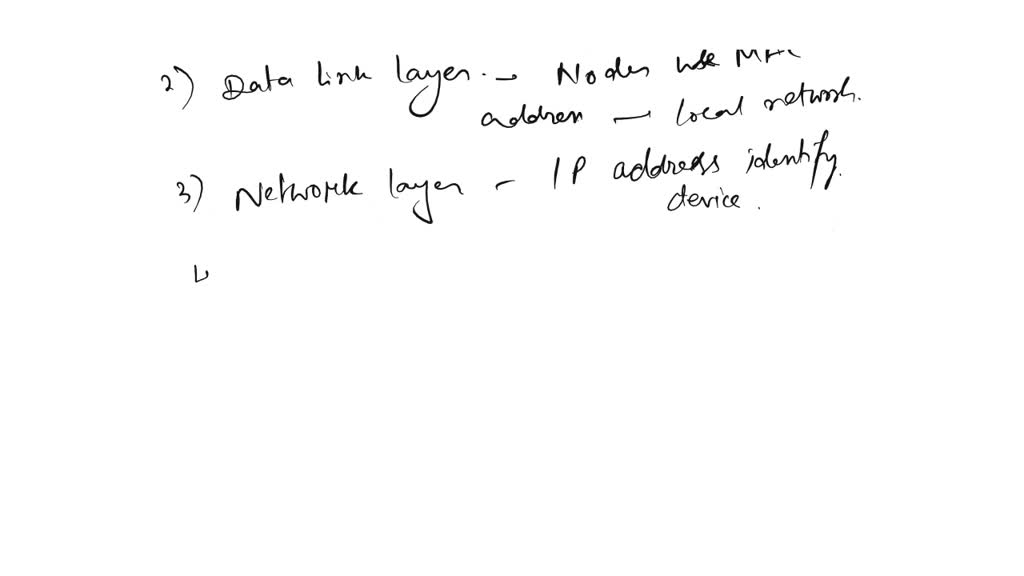 2) Data link layer. - Nodes use MAC
address - local network.
3) Network layer - IP address identify
device.